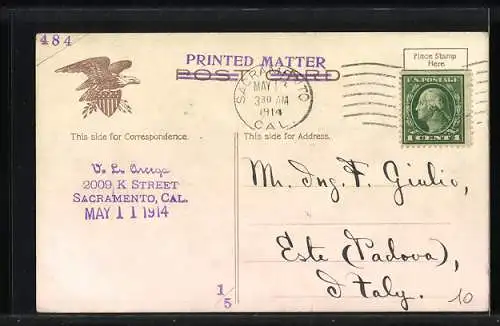 484
PRINTED MATTER
POST CARD
Place Stamp
Here.
SACRAMENTO
MAY 13
3 30 AM
1914
CAL.
U.S. POSTAGE
1 CENT 1
This side for Correspondence.
This side for Address.
V. L.
2009 K STREET
SACRAMENTO, CAL.
MAY 11 1914
Mr. Ing. F. Giulio,
Este (Padova),
Italy.
1/5
10